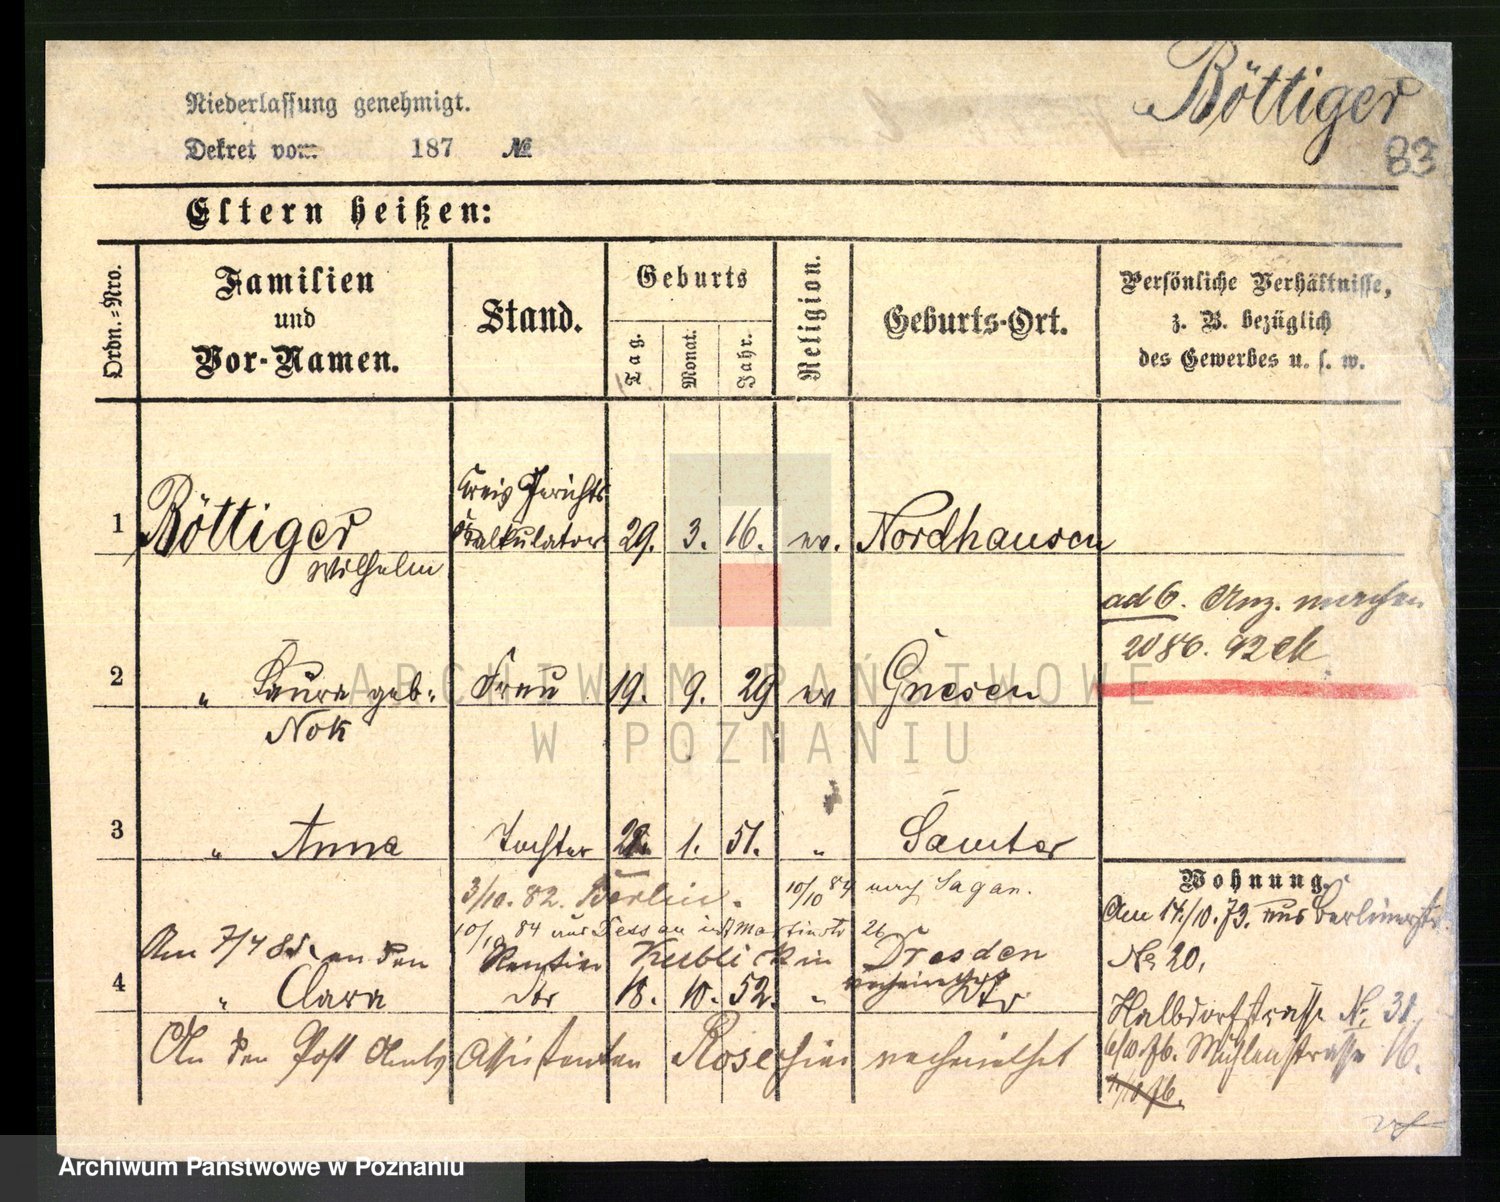 Böttiger
83
Niederlassung genehmigt.
Dekret vom 187 №
Eltern heißen:
Ordn.-Nro.
Familien und Vor-Namen.
Stand.
Geburts
Tag.
Monat.
Jahr.
Religion.
Geburts-Ort.
Persönliche Verhältnisse,
z. B. bezüglich
des Gewerbes u. s. w.
1 Böttiger Kreis Gerichts Kalkulator 29. 3. 16. ev. Nordhausen
Wilhelm
ad 6. Anz. machen
2086. 92
2 " Laura geb. Frau 19. 9. 29 ev Gnesen
Nok
3 " Anna Tochter 1. 51. " Samter
3/10. 82. Berlin. 10/10 84 nach Sagan.
10/10 84 aus Dessau Martinstr 26
Am 7/4 85. an den Rentier Kublick in Dresden
verheirathet
4 " Clara dto 18. 10. 52. " dto
An den Post Amts Assistenten Rose hier verheirathet
Wohnung.
Am 14/10. 73. aus Berlinerstr.
No 20,
Halbdorfstrasse No. 31.
6/10. 76. Mühlenstrasse 16.
11/10 76.
ARCHIWUM PAŃSTWOWE
W POZNANIU
Archiwum Państwowe w Poznaniu